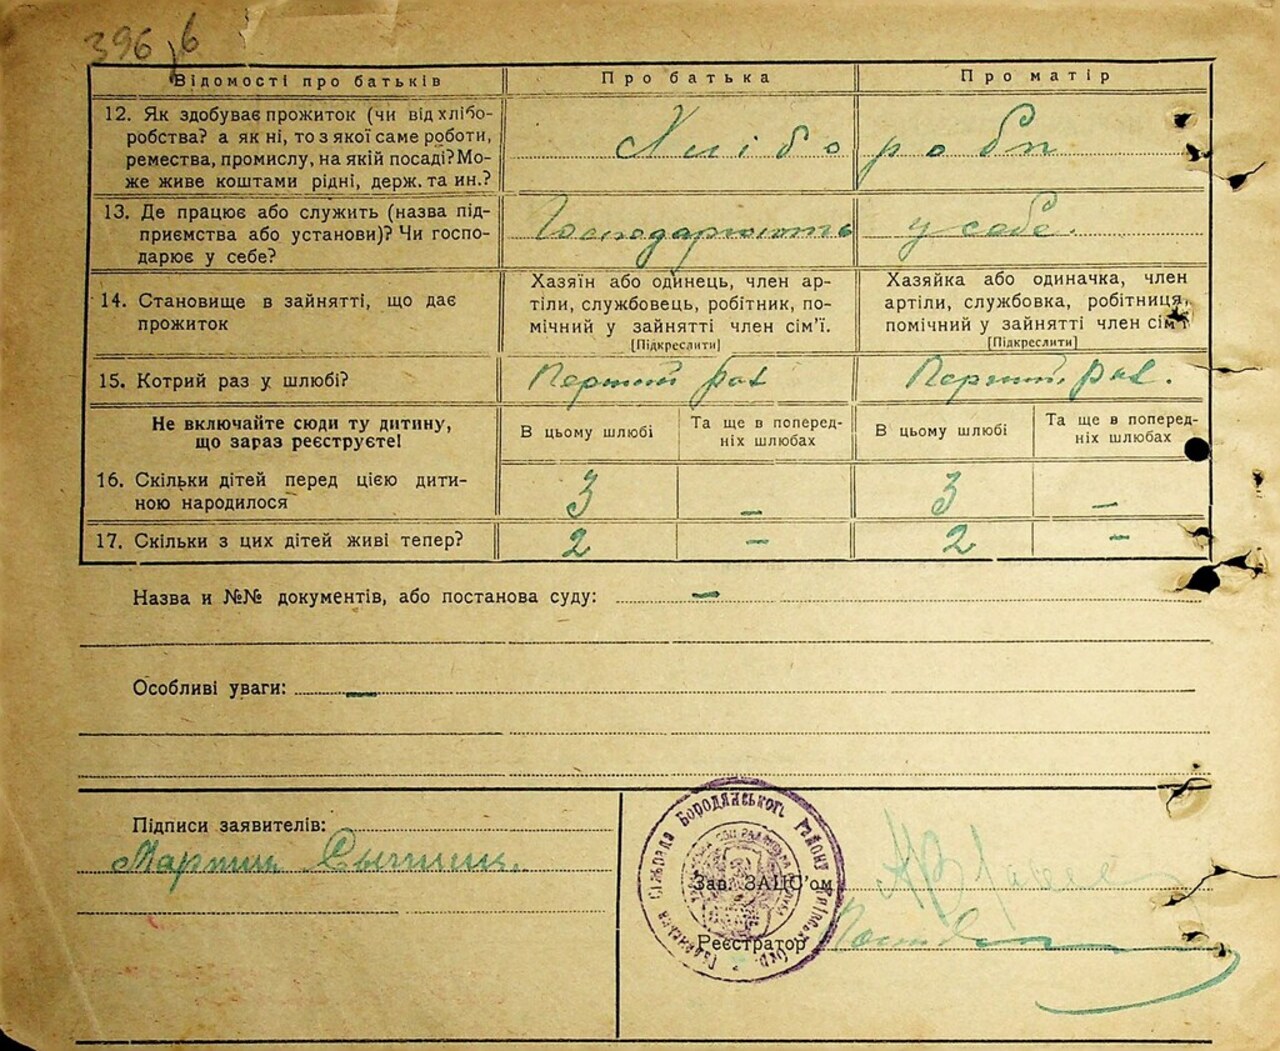 396
Відомості про батьків
Про батька
Про матір
12. Як здобуває прожиток (чи від хлібо-
робства? а як ні, то з якої саме роботи,
ремества, промислу, на якій посаді? Мо-
же живе коштами рідні, держ. та ин.?
Хлібороби
13. Де працює або служить (назва під-
приємства або установи)? Чи госпо-
дарює у себе?
у себе.
14. Становище в зайнятті, що дає
прожиток
Хазяїн або одинець, член ар-
тіли, службовець, робітник, по-
мічний у зайнятті член сім’ї.
[Підкреслити]
Хазяйка або одиначка, член
артіли, службовка, робітниця,
помічний у зайнятті член сім’ї
[Підкреслити]
15. Котрий раз у шлюбі?
Перший раз
Перший раз.
Не включайте сюди ту дитину,
що зараз реєструєте!
В цьому шлюбі
Та ще в поперед-
ніх шлюбах
В цьому шлюбі
Та ще в поперед-
ніх шлюбах
16. Скільки дітей перед цією дити-
ною народилося
3
–
3
–
17. Скільки з цих дітей живі тепер?
2
–
2
–
Назва и №№ документів, або постанова суду: –
Особливі уваги: –
Підписи заявителів:
Мартин
Сільрада Бородянського району
Зав. ЗАЦС’ом
Реєстратор